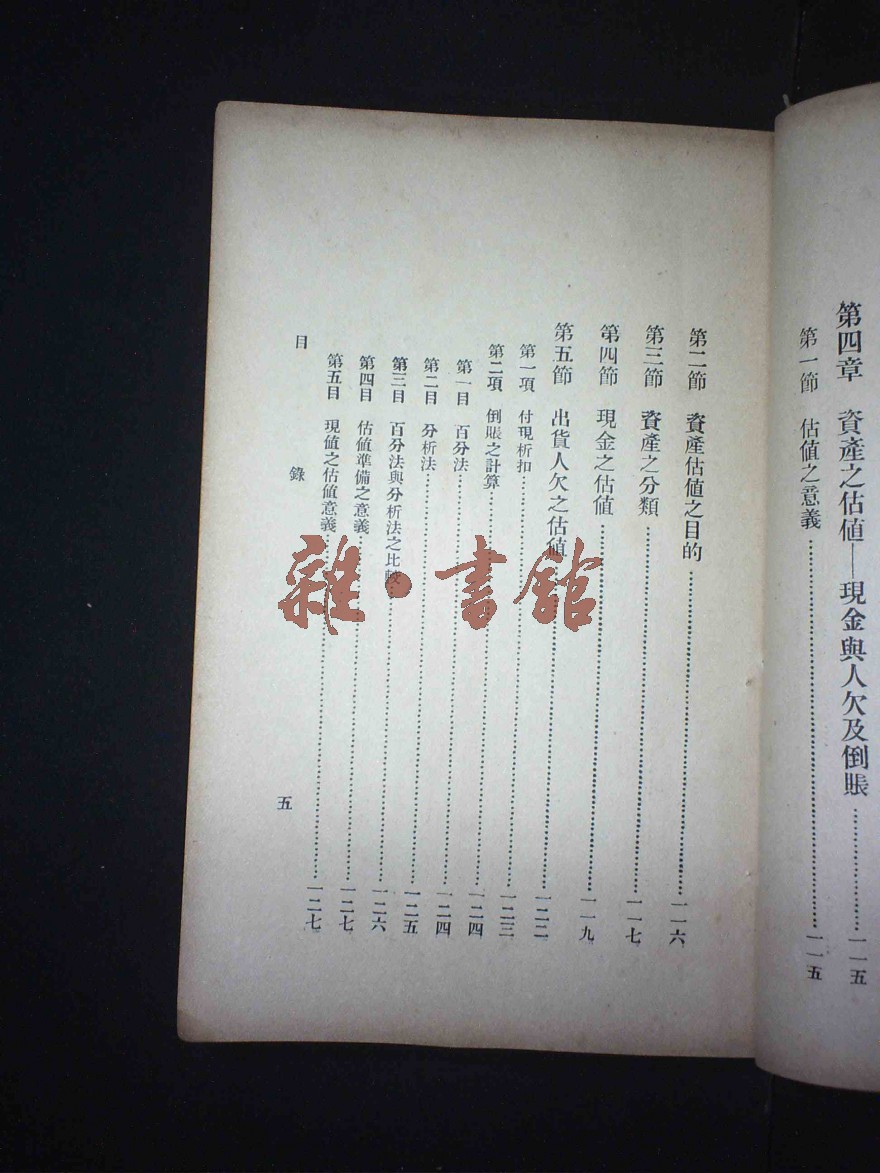 第四章　資產之估值——現金與人欠及倒賬……一一五
第一節　估值之意義……一一五
第二節　資產估值之目的……一一六
第三節　資產之分類……一一七
第四節　現金之估值……一一九
第五節　出貨人欠之估值……一二二
第一項　付現折扣……一二三
第二項　倒賬之計算……一二三
第一目　百分法……一二四
第二目　分析法……一二四
第三目　百分法與分析法之比較……一二五
第四目　估值準備之意義……一二六
第五目　現值之估值意義……一二七
目　錄
五
雜·書館